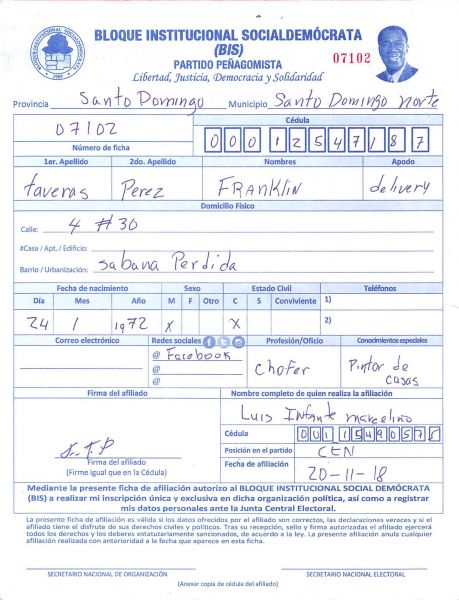 BLOQUE INSTITUCIONAL SOCIALDEMÓCRATA
(BIS)
PARTIDO PEÑAGOMISTA
Libertad, Justicia, Democracia y Solidaridad
07102
Provincia Santo Domingo Municipio Santo Domingo Norte
07102
Número de ficha
Cédula
0 0 0 1 2 5 4 7 1 8 7
1er. Apellido 2do. Apellido Nombres Apodo
taveras Perez FRANKlIN delivery
Domicilio Físico
Calle: 4 # 30
#Casa / Apt. / Edificio:
Barrio / Urbanización: Sabana Perdida
Fecha de nacimiento Sexo Estado Civil Teléfonos
Día Mes Año M F Otro C S Conviviente 1)
24 1 1972 X X 2)
Correo electrónico Redes sociales Profesión/Oficio Conocimientos especiales
@ Facebook
@
@
Chofer
Pintor de casas
Firma del afiliado
Nombre completo de quien realiza la afiliación
Luis Infante marcelino
Cédula
Posición en el partido CEN
Fecha de afiliación 20-11-18
Firma del afiliado
(Firme igual que en la Cédula)
Mediante la presente ficha de afiliación autorizo al BLOQUE INSTITUCIONAL SOCIAL DEMÓCRATA
(BIS) a realizar mi inscripción única y exclusiva en dicha organización política, así como a registrar
mis datos personales ante la Junta Central Electoral.
La presente ficha de afiliación es válida si los datos ofrecidos por el afiliado son correctos, las declaraciones veraces y si el
afiliado tiene el disfrute de sus derechos civiles y políticos. Tras su recepción, sello y firma autorizada el afiliado ejercerá
todos los derechos y los deberes estatutariamente sancionados, de acuerdo a la ley. La presente afiliación anula cualquier
afiliación realizada con anterioridad a la fecha que aparece en esta ficha.
SECRETARIO NACIONAL DE ORGANIZACIÓN SECRETARIO NACIONAL ELECTORAL
(Anexar copia de cédula del afiliado)